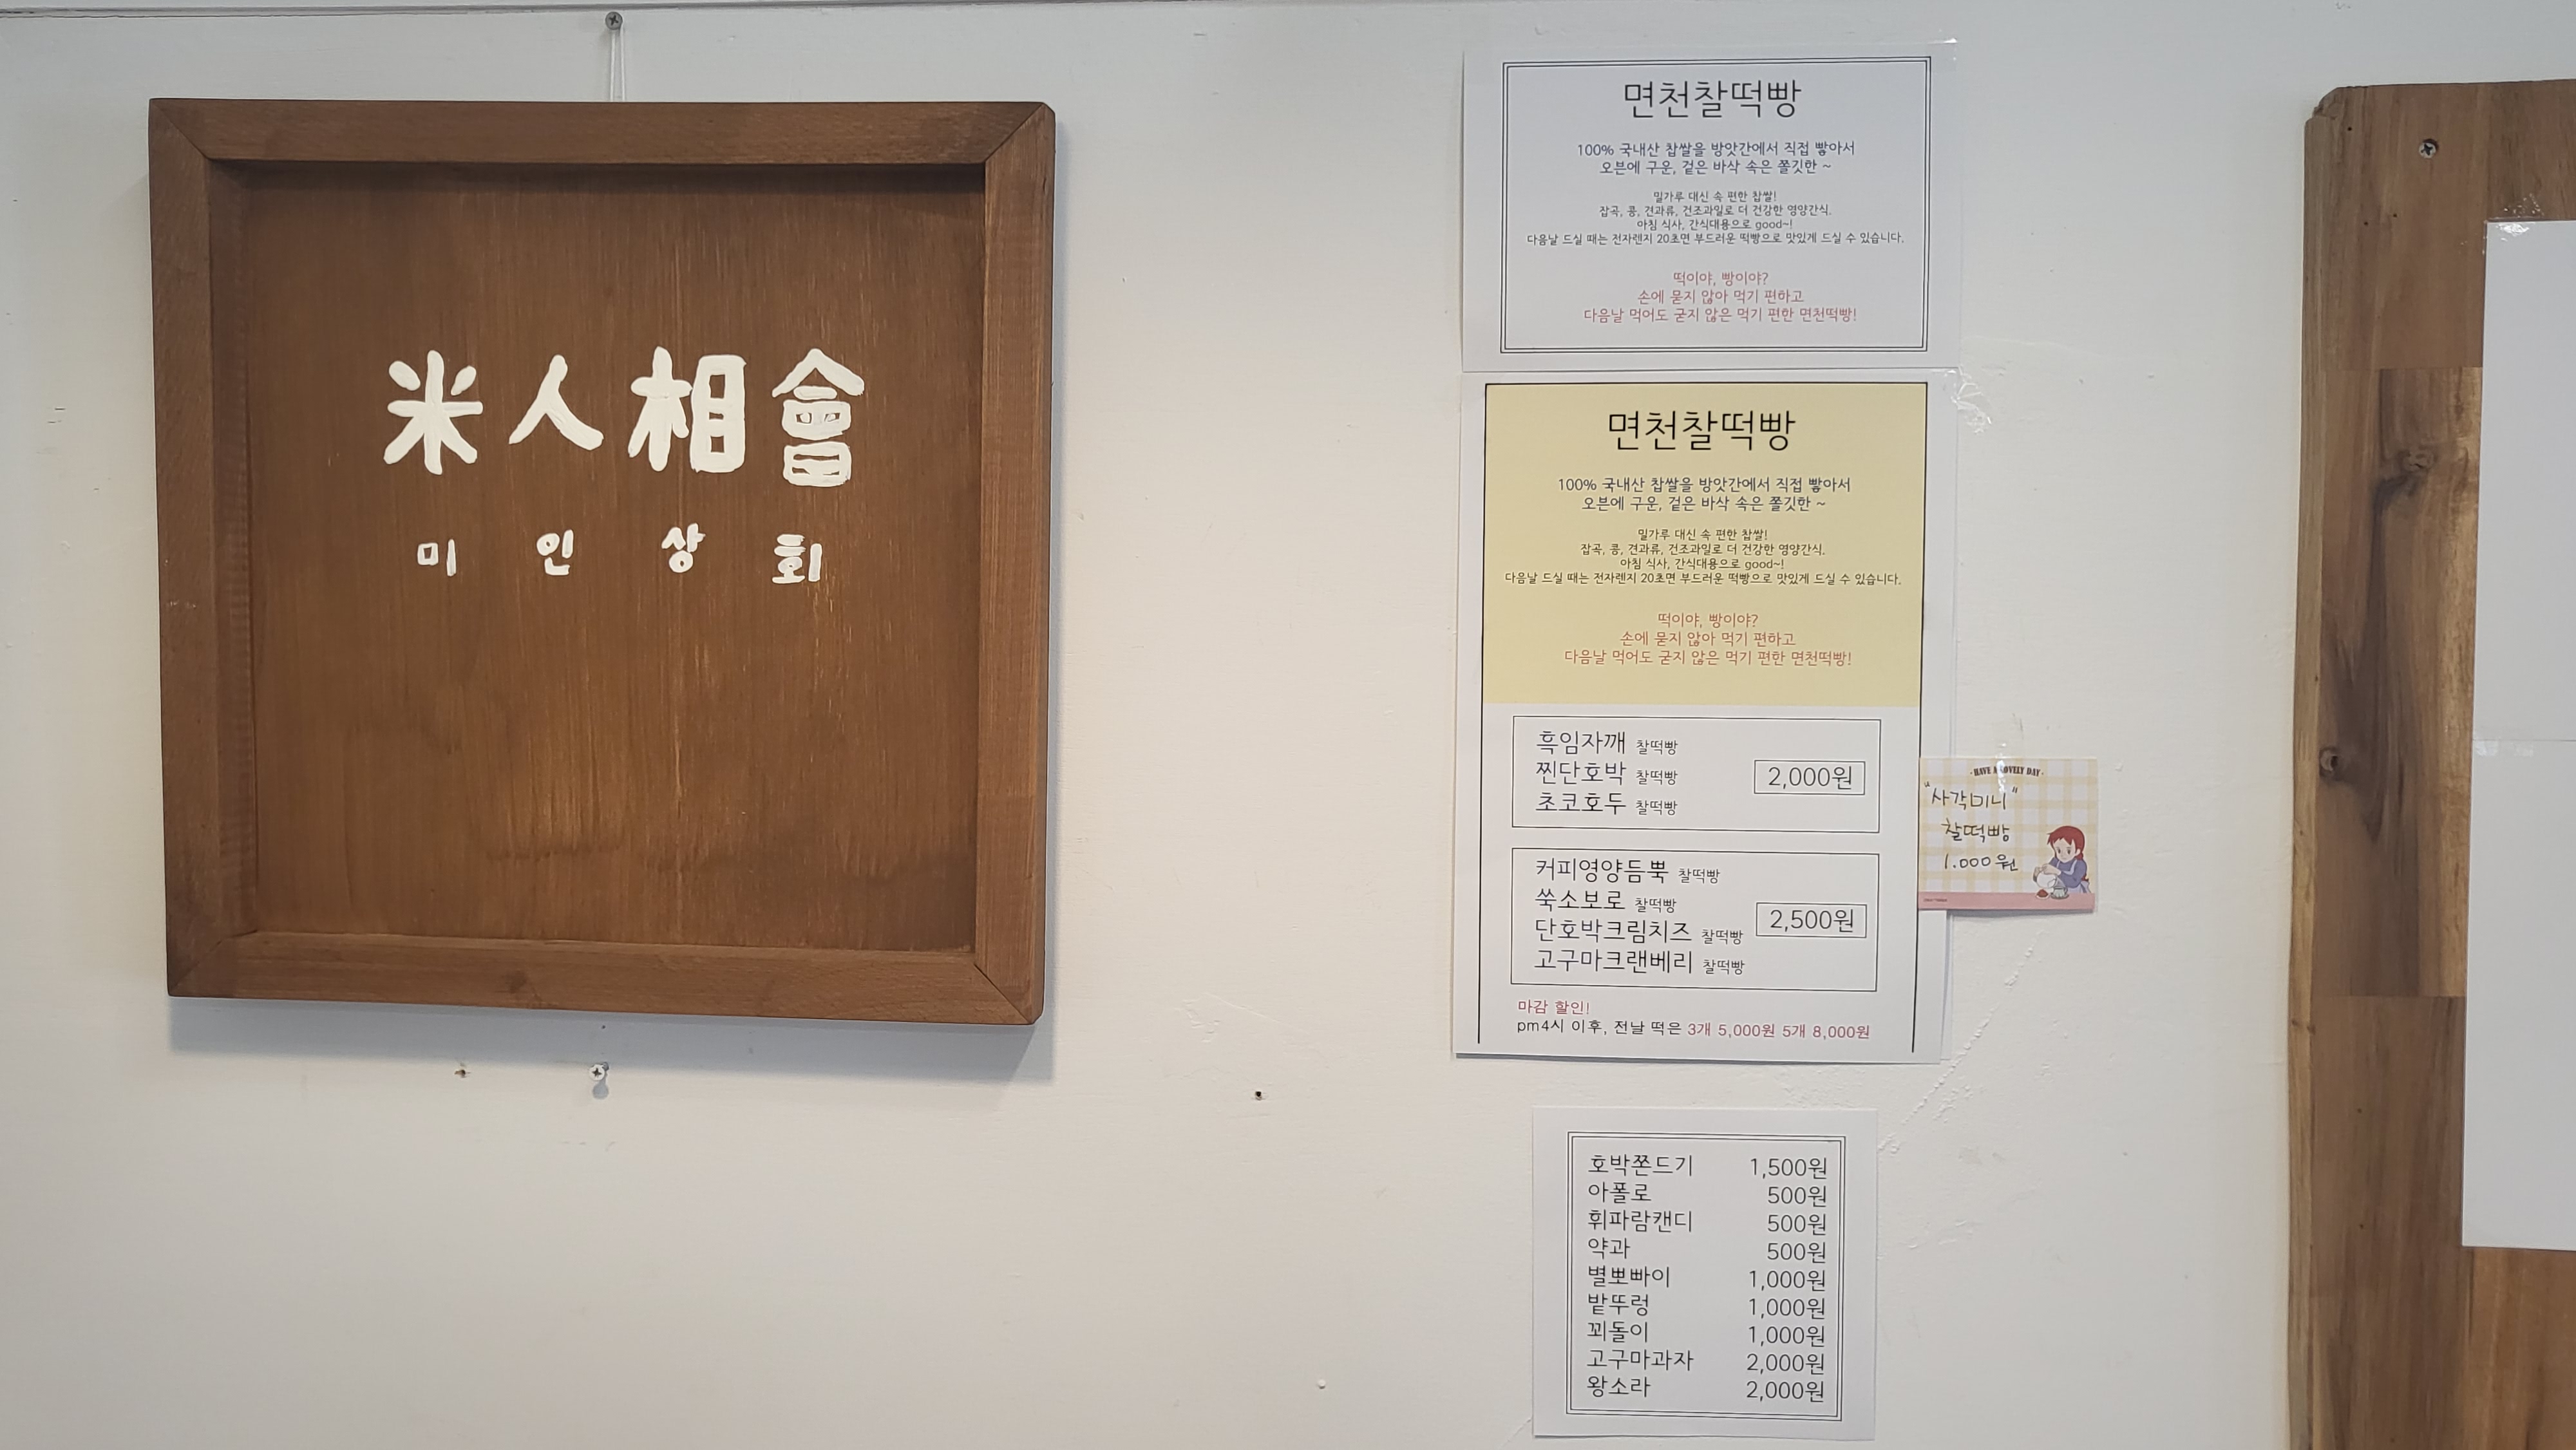 米人相會
미인상회
면천찰떡빵
100% 국내산 찹쌀을 방앗간에서 직접 빻아서
오븐에 구운, 겉은 바삭 속은 쫄깃한 ~
밀가루 대신 속 편한 찹쌀!
잡곡, 콩, 견과류, 건조과일로 더 건강한 영양간식.
아침 식사, 간식대용으로 good~!
다음날 드실 때는 전자렌지 20초면 부드러운 떡빵으로 맛있게 드실 수 있습니다.
떡이야, 빵이야?
손에 묻지 않아 먹기 편하고
다음날 먹어도 굳지 않은 먹기 편한 면천떡빵!
면천찰떡빵
100% 국내산 찹쌀을 방앗간에서 직접 빻아서
오븐에 구운, 겉은 바삭 속은 쫄깃한 ~
밀가루 대신 속 편한 찹쌀!
잡곡, 콩, 견과류, 건조과일로 더 건강한 영양간식.
아침 식사, 간식대용으로 good~!
다음날 드실 때는 전자렌지 20초면 부드러운 떡빵으로 맛있게 드실 수 있습니다.
떡이야, 빵이야?
손에 묻지 않아 먹기 편하고
다음날 먹어도 굳지 않은 먹기 편한 면천떡빵!
흑임자깨 찰떡빵
찐단호박 찰떡빵
초코호두 찰떡빵
2,000원
커피영양듬뿍 찰떡빵
쑥소보로 찰떡빵
단호박크림치즈 찰떡빵
고구마크랜베리 찰떡빵
2,500원
마감 할인!
pm4시 이후, 전날 떡은 3개 5,000원 5개 8,000원
· HAVE A LOVELY DAY ·
"사각미니"
찰떡빵
1.000원
호박쫀드기 1,500원
아폴로 500원
휘파람캔디 500원
약과 500원
별뽀빠이 1,000원
밭뚜렁 1,000원
꾀돌이 1,000원
고구마과자 2,000원
왕소라 2,000원